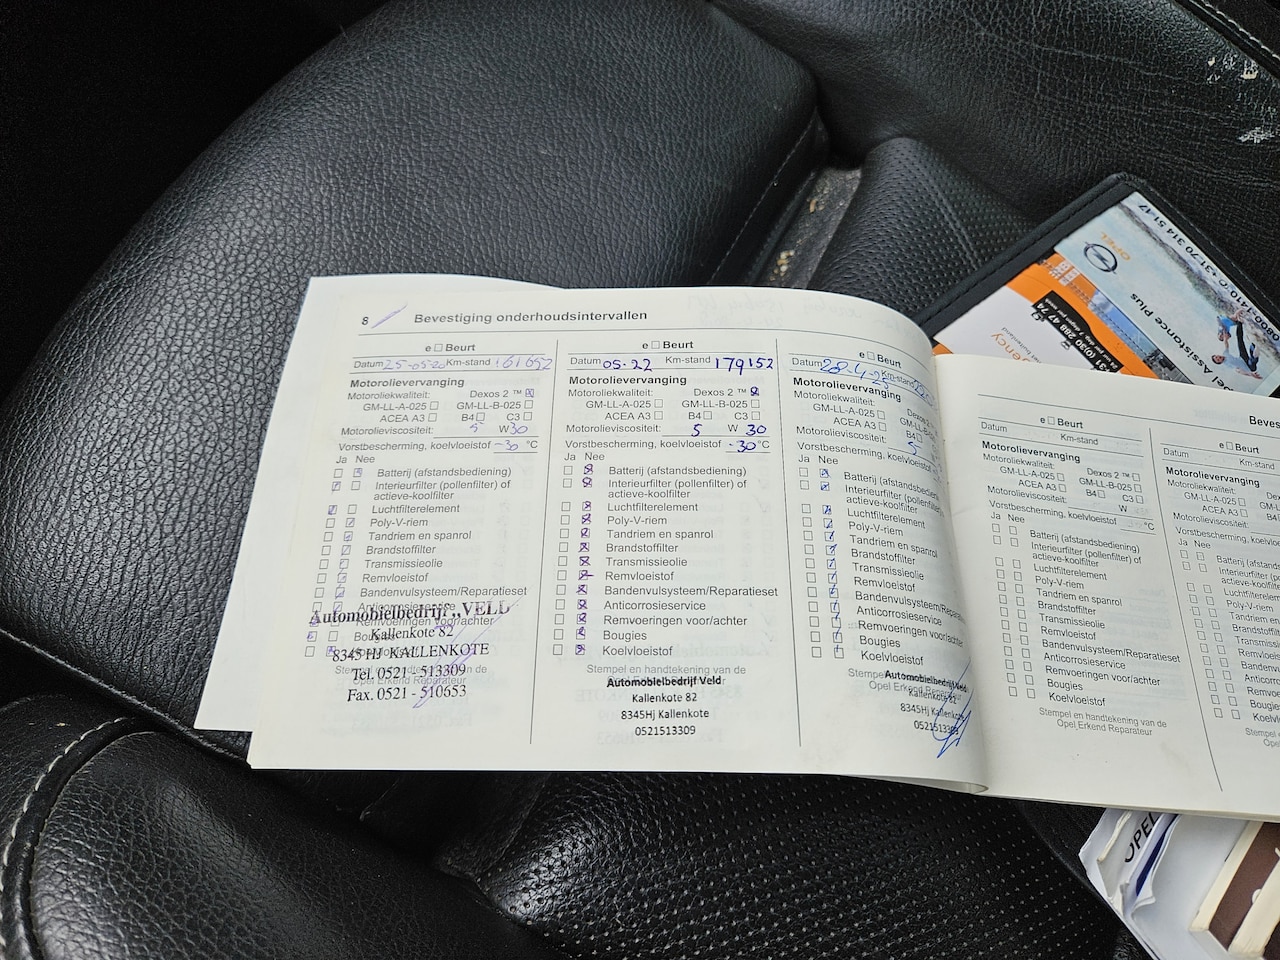 8
Bevestiging onderhoudsintervallen
e ☐ Beurt
Datum 25-05-20 Km-stand 161652
Motorolievervanging
Motoroliekwaliteit: Dexos 2 ™ ☒
GM-LL-A-025 ☐ GM-LL-B-025 ☐
ACEA A3 ☐ B4 ☐ C3 ☐
Motorolieviscositeit: 5 W 30
Vorstbescherming, koelvloeistof -30 °C
Ja Nee
Batterij (afstandsbediening)
Interieurfilter (pollenfilter) of
actieve-koolfilter
Luchtfilterelement
Poly-V-riem
Tandriem en spanrol
Brandstoffilter
Transmissieolie
Remvloeistof
Bandenvulsysteem/Reparatieset
Anticorrosieservice
Remvoeringen voor/achter
Automobielbedrijf „VELD
Kallenkote 82
8345 HJ KALLENKOTE
Tel. 0521 - 513309
Fax. 0521 - 510653
e ☐ Beurt
Datum 05-22 Km-stand 179152
Motorolievervanging
Motoroliekwaliteit: Dexos 2 ™ ☒
GM-LL-A-025 ☐ GM-LL-B-025 ☐
ACEA A3 ☐ B4 ☐ C3 ☐
Motorolieviscositeit: 5 W 30
Vorstbescherming, koelvloeistof -30 °C
Ja Nee
Batterij (afstandsbediening)
Interieurfilter (pollenfilter) of
actieve-koolfilter
Luchtfilterelement
Poly-V-riem
Tandriem en spanrol
Brandstoffilter
Transmissieolie
Remvloeistof
Bandenvulsysteem/Reparatieset
Anticorrosieservice
Remvoeringen voor/achter
Bougies
Koelvloeistof
Stempel en handtekening van de
Automobielbedrijf Veld
Kallenkote 82
8345Hj Kallenkote
0521513309
e ☐ Beurt
Datum Km-stand
Motorolievervanging
Motoroliekwaliteit:
GM-LL-A-025 ☐
ACEA A3 ☐ B4
Motorolieviscositeit: 5
Vorstbescherming, koelvloeistof
Ja Nee
Batterij
Interieurfilter
actieve-koolfilter
Luchtfilterelement
Poly-V-riem
Tandriem en spanrol
Brandstoffilter
Transmissieolie
Remvloeistof
Anticorrosieservice
Remvoeringen voor/achter
Bougies
Koelvloeistof
Opel Erkend Reparateur
Automobielbedrijf Veld
Kallenkote 82
8345Hj Kallenkote
e ☐ Beurt
Datum Km-stand
Motorolievervanging
Motoroliekwaliteit: Dexos 2 ™ ☐
GM-LL-A-025 ☐ GM-LL-B-025 ☐
ACEA A3 ☐ B4 ☐ C3 ☐
Motorolieviscositeit: W
Vorstbescherming, koelvloeistof °C
Ja Nee
Batterij (afstandsbediening)
Interieurfilter (pollenfilter) of
actieve-koolfilter
Luchtfilterelement
Poly-V-riem
Tandriem en spanrol
Brandstoffilter
Transmissieolie
Remvloeistof
Bandenvulsysteem/Reparatieset
Anticorrosieservice
Remvoeringen voor/achter
Bougies
Koelvloeistof
Stempel en handtekening van de
Opel Erkend Reparateur
e ☐ Beurt
Datum
Motorolievervanging
Motoroliekwaliteit:
GM-LL-A-025 ☐
ACEA A3 ☐
Motorolieviscositeit:
Ja Nee
Luchtfilterelement
Poly-V-riem
OPEL
Assistance Plus
OPEL